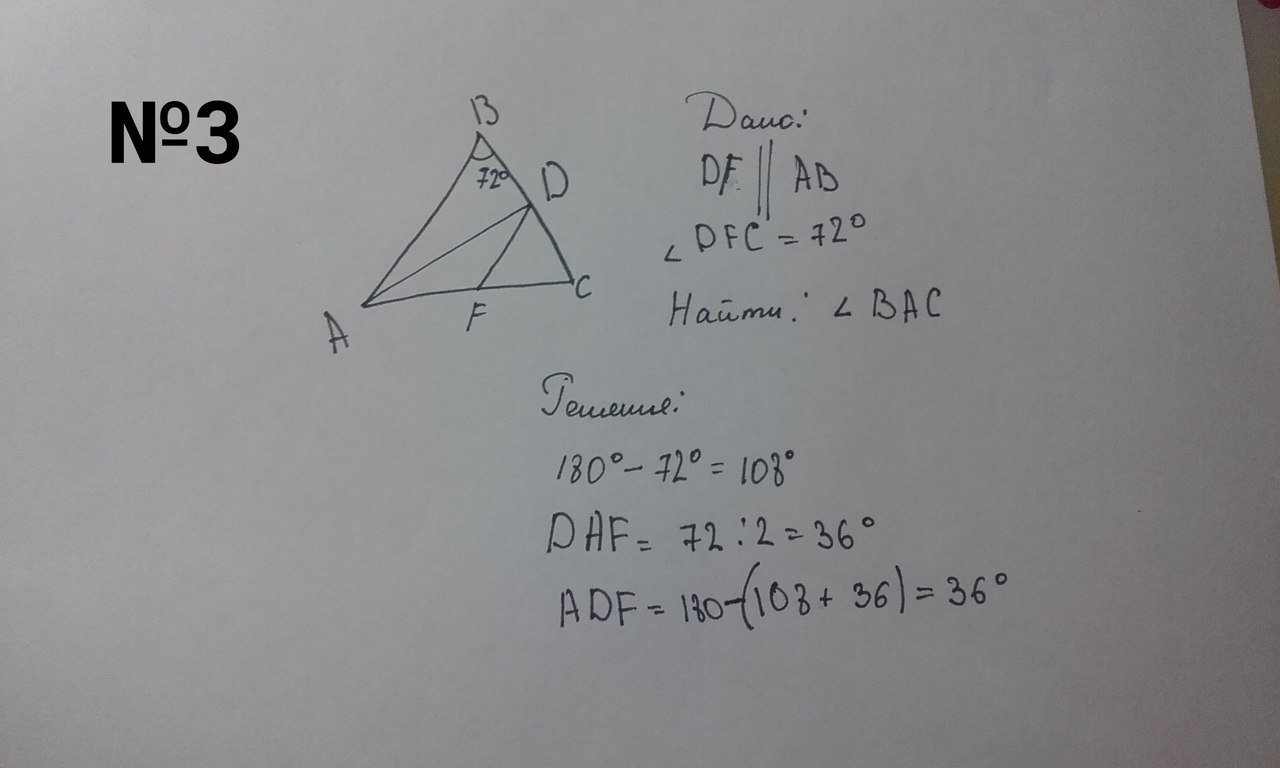 №3
B
72°
D
A
F
C
Дано:
DF || AB
∠ DFC = 72°
Найти: ∠ BAC
Решение:
180° - 72° = 108°
DAF = 72 : 2 = 36°
ADF = 180-(108 + 36) = 36°